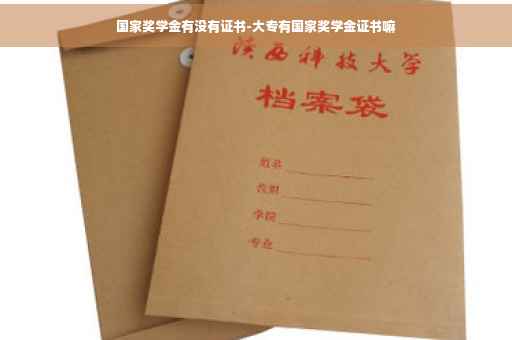 国家奖学金有没有证书-大专有国家奖学金证书嘛
陕西科技大学
档案袋
姓名
学院
专业